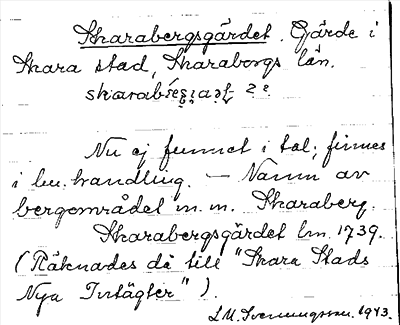 Skarabergsgärdet. Gärde i
Skara stad, Skaraborgs län.
Nu ej funnet i tal; finnes
i lm. handling. — Namn av
bergområdet m. m. Skaraberg.
Skarabergsgärdet lm. 1739.
(Räknades då till "Skara Stads
Nya Intägter").
L M. Svenungsson. 1943.